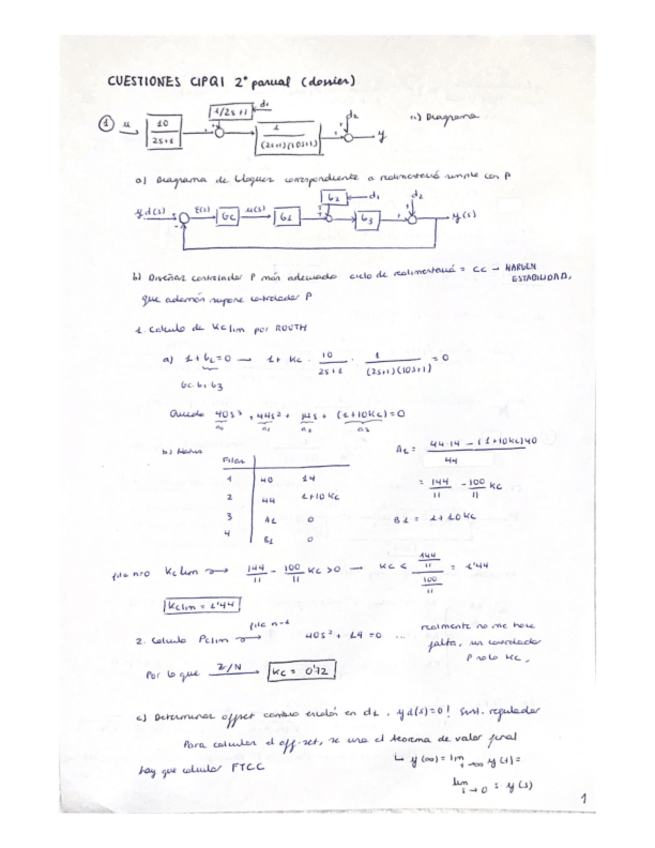 CUESTIONES CIPQI 2º parcial (dossier)
① u 10/2s+1 1/2s+1 d1 1/(2s+1)(10s+1) d2 y a) Diagrama
a) Diagrama de bloques correspondiente a realimentació simple con P
yd(s) E(s) Gc u(s) G1 G2 d1 G3 d2 y(s)
b) Diseñar controlador P más adecuado ciclo de realimentació = CC → MARGEN ESTABILIDAD,
que además supone controlador P
1. Calculo de Kc lim por ROUTH
a) 1+GL=0 → 1+ Kc · 10/2s+1 · 1/(2s+1)(10s+1) = 0
Gc·G1·G3
Queda 40s³ + 44s² + 14s + (1+10Kc) = 0
a0 a1 a2 a3
b) Matriz
Filas
1 40 14
2 44 1+10Kc
3 A1 0
4 B1 0
A1 = 44·14 − (1+10Kc)40 / 44
= 144/11 − 100/11 Kc
B1 = 1+10Kc
fila n=0 Kc lim → 144/11 − 100/11 Kc > 0 → Kc < 144/11 / 100/11 = 1'44
Kc lim = 1'44
2. Calculo Pc lim fila n-1 → 40s² + 19 = 0 ... realmente no me hace
falta, un controlador
P solo Kc,
Por lo que Z/N → Kc = 0'72
c) Determinar offset cambio escalón en d1, yd(s)=0! Sist. regulador
Para calcular el off-set, se usa el teorema de valor final
hay que calcular FTCC
↳ y(∞) = lim t→∞ y(t) =
lim s→0 s y(s)
1